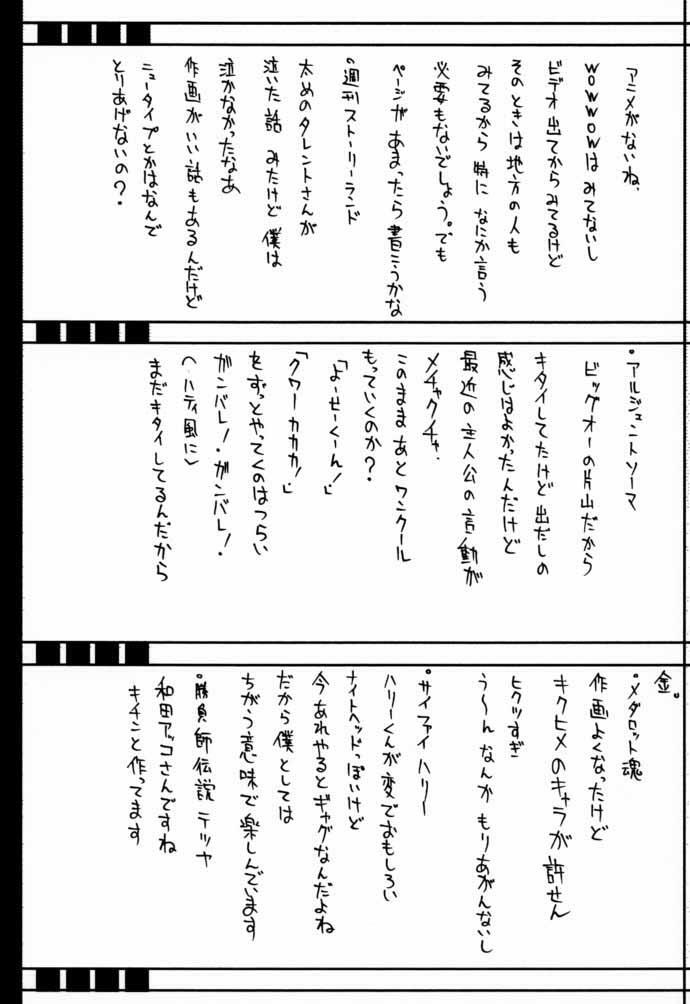 アニメがないね、
WOWWOWはみてないし
ビデオ出てからみてるけど
そのときは地方の人も
みてるから 特に なにか言う
必要もないでしょう。でも
ページがあまったら書こうかな
・週刊ストーリーランド
太めのタレントさんが
泣いた話 みたけど 僕は
泣かなかったなあ
作画がいい話もあるんだけど
ニュータイプとかはなんで
とりあげないの?
・アルジェントソーマ
ビッグオーの片山だから
キタイしてたけど 出だしの
感じはよかったんだけど
最近の主人公の言動が
メチャクチャ.
このまま あと ワンクール
もっていくのか?
「よーせーくーん!」
「クワーカカカ!」
をずっとやってくのはつらい
ガンバレ!・ガンバレ!・
(ハティ風に)
まだキタイしてるんだから
金。
・メダロット魂
作画よくなったけど
キクヒメのキャラが 許せん
ヒクツすぎ
う〜ん なんか もりあがんないし
・サイファイ ハリー
ハリーくんが変でおもしろい
ナイトヘッドっぽいけど
今あれやるとギャグなんだよね
だから僕としては
ちがう意味で楽しんでいます
・勝負師伝説 テツヤ
和田アッコさんですね
キチンと作ってます